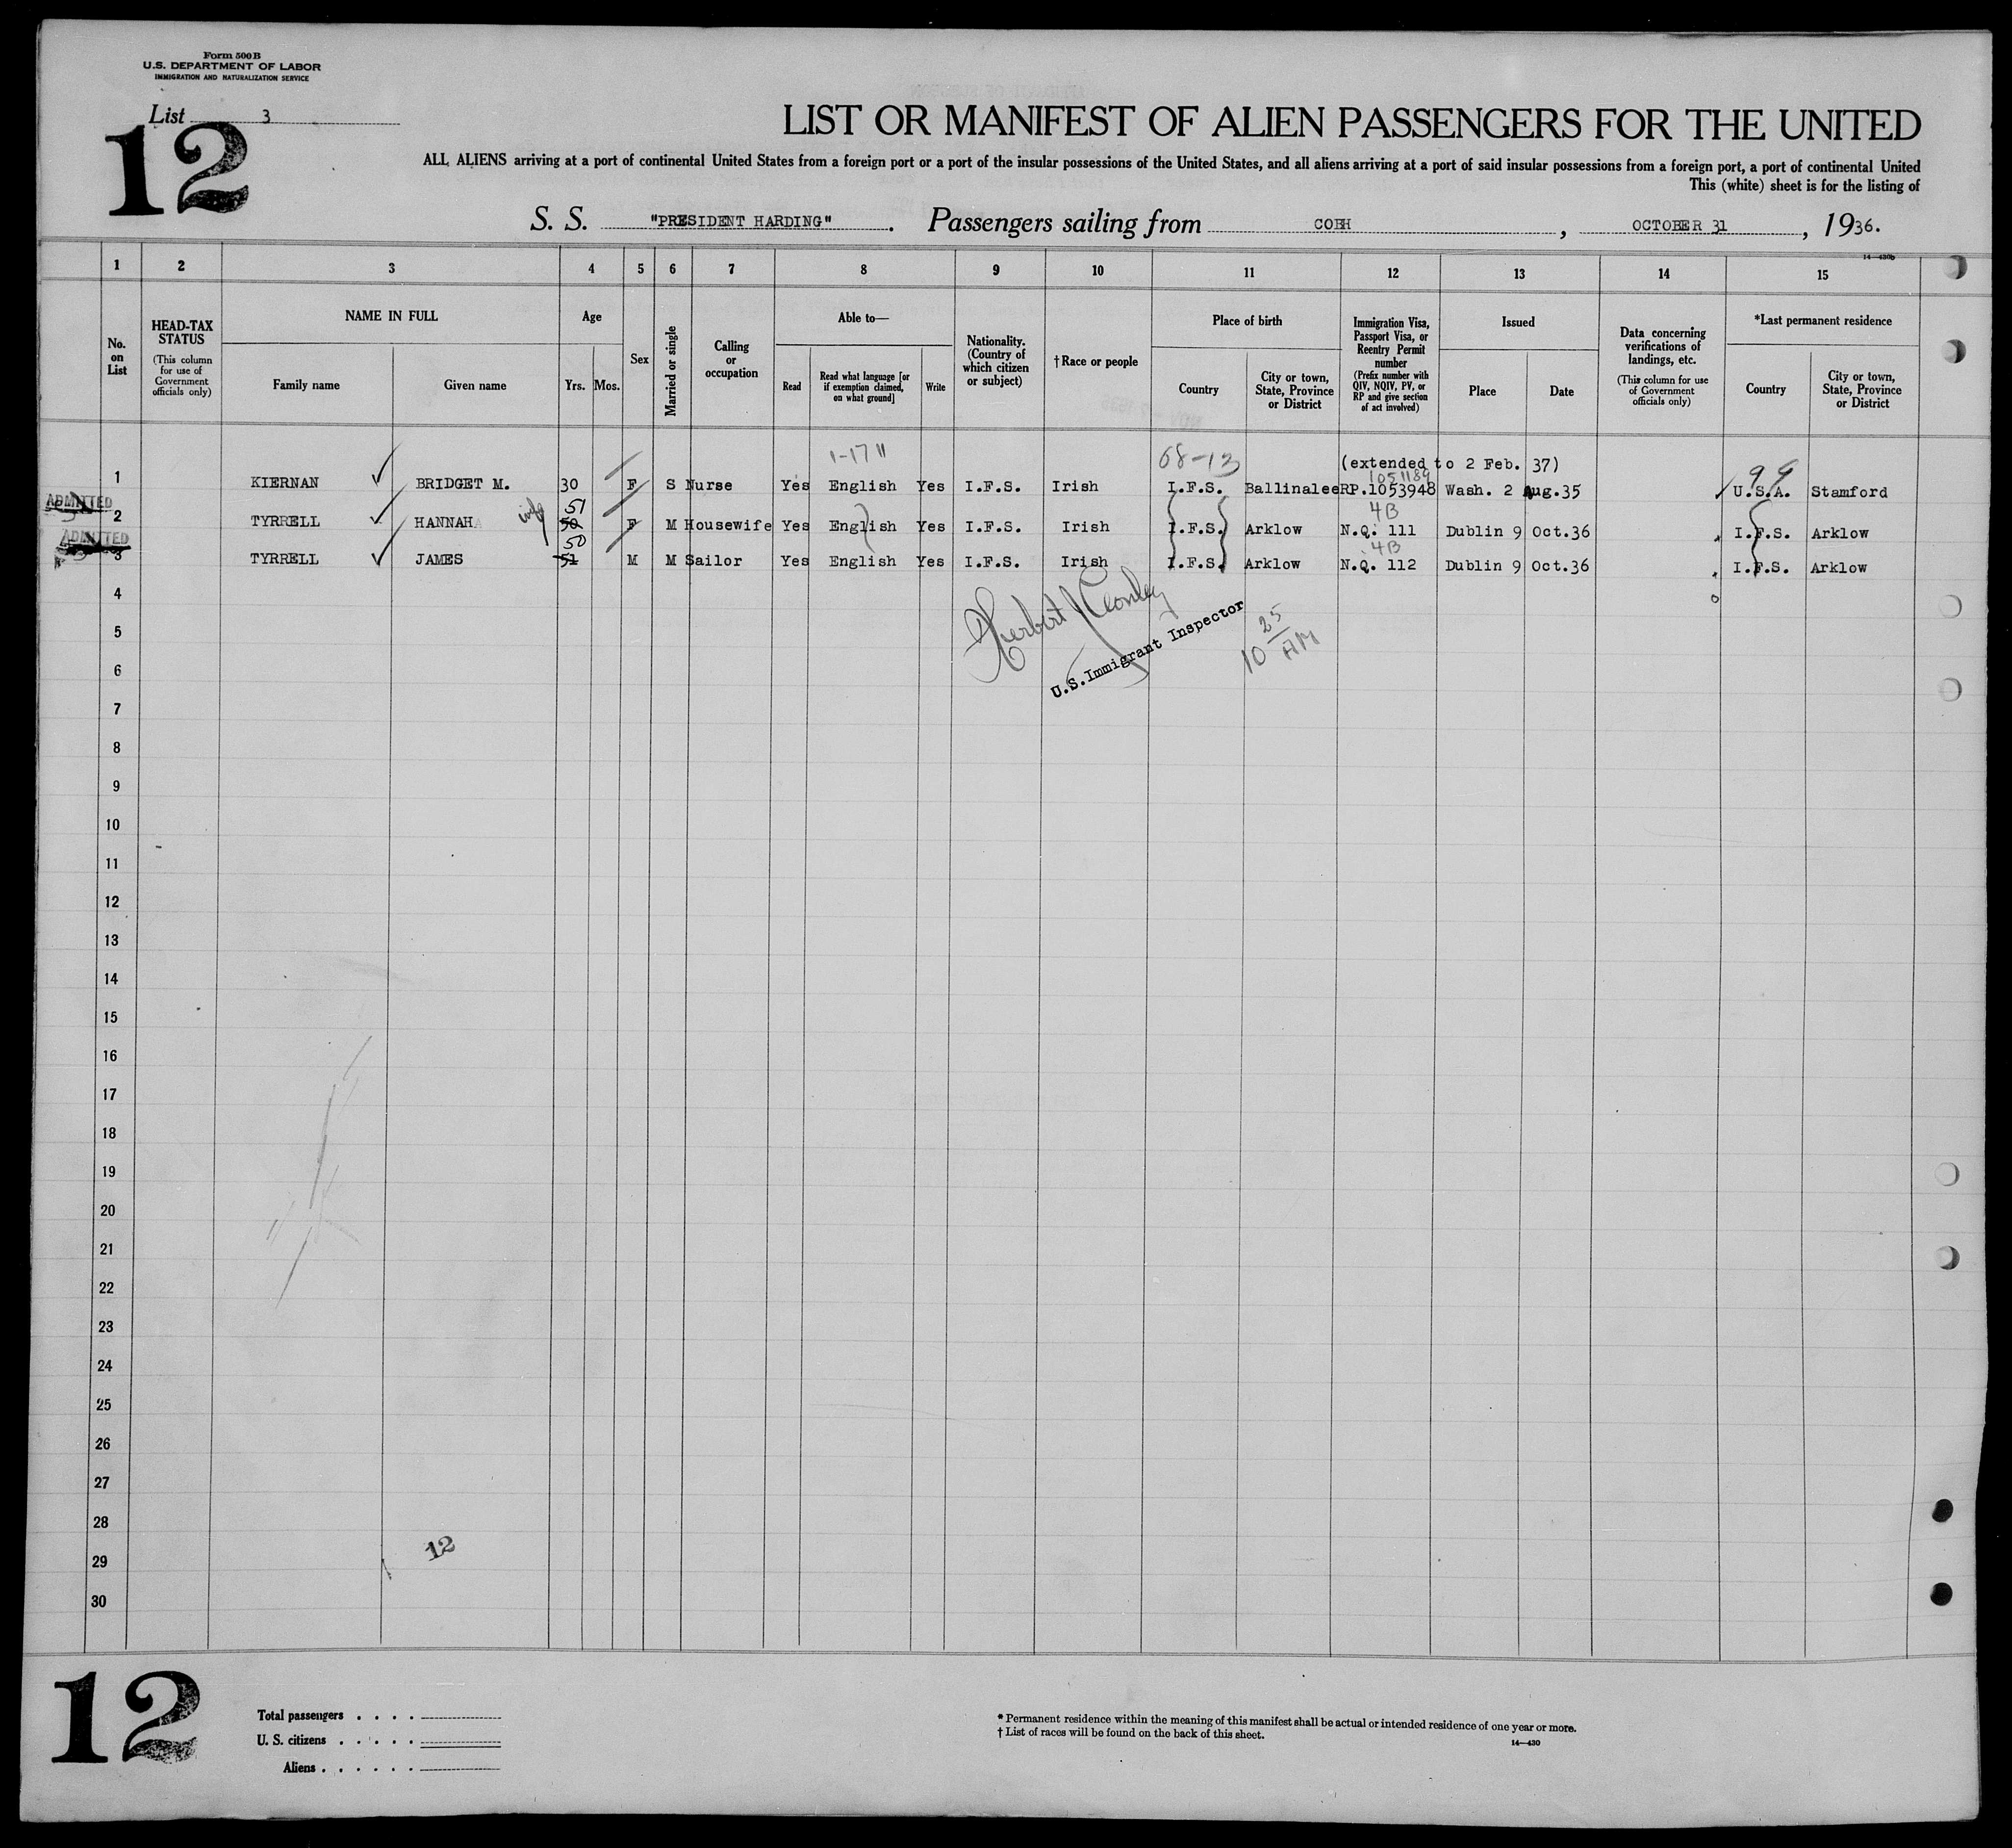 Form 500 B
U.S. DEPARTMENT OF LABOR
IMMIGRATION AND NATURALIZATION SERVICE
List 3
12
LIST OR MANIFEST OF ALIEN PASSENGERS FOR THE UNITED
ALL ALIENS arriving at a port of continental United States from a foreign port or a port of the insular possessions of the United States, and all aliens arriving at a port of said insular possessions from a foreign port, a port of continental United
This (white) sheet is for the listing of
S. S. "PRESIDENT HARDING". Passengers sailing from COBH, OCTOBER 31, 1936.
14—430b
1 2 3 4 5 6 7 8 9 10 11 12 13 14 15
No. on List
HEAD-TAX STATUS
(This column for use of Government officials only)
NAME IN FULL
Family name
Given name
Age
Yrs. Mos.
Sex
Married or single
Calling or occupation
Able to—
Read
Read what language [or if exemption claimed, on what ground]
Write
Nationality. (Country of which citizen or subject)
† Race or people
Place of birth
Country
City or town, State, Province or District
Immigration Visa, Passport Visa, or Reentry Permit number
(Prefix number with QIV, NQIV, PV, or RP and give section of act involved)
Issued
Place
Date
Data concerning verifications of landings, etc.
(This column for use of Government officials only)
*Last permanent residence
Country
City or town, State, Province or District
1-17 11 68-13 (extended to 2 Feb. 37) 99
1051189
1 KIERNAN BRIDGET M. 30 F S Nurse Yes English Yes I.F.S. Irish I.F.S. Ballinalee RP.1053948 Wash. 2 Aug.35 U.S.A. Stamford
ADMITTED
51 4B
2 TYRRELL HANNAH wife 50 F M Housewife Yes English Yes I.F.S. Irish I.F.S. Arklow N.Q. 111 Dublin 9 Oct.36 I.F.S. Arklow
ADMITTED
50 4B
3 TYRRELL JAMES 51 M M Sailor Yes English Yes I.F.S. Irish I.F.S. Arklow N.Q. 112 Dublin 9 Oct.36 I.F.S. Arklow
4
5
6
U.S.Immigrant Inspector
10 25 AM
7
8
9
10
11
12
13
14
15
16
17
18
19
20
21
22
23
24
25
26
27
28
29
30
12
12
Total passengers
U. S. citizens
Aliens
* Permanent residence within the meaning of this manifest shall be actual or intended residence of one year or more.
† List of races will be found on the back of this sheet.
14—430